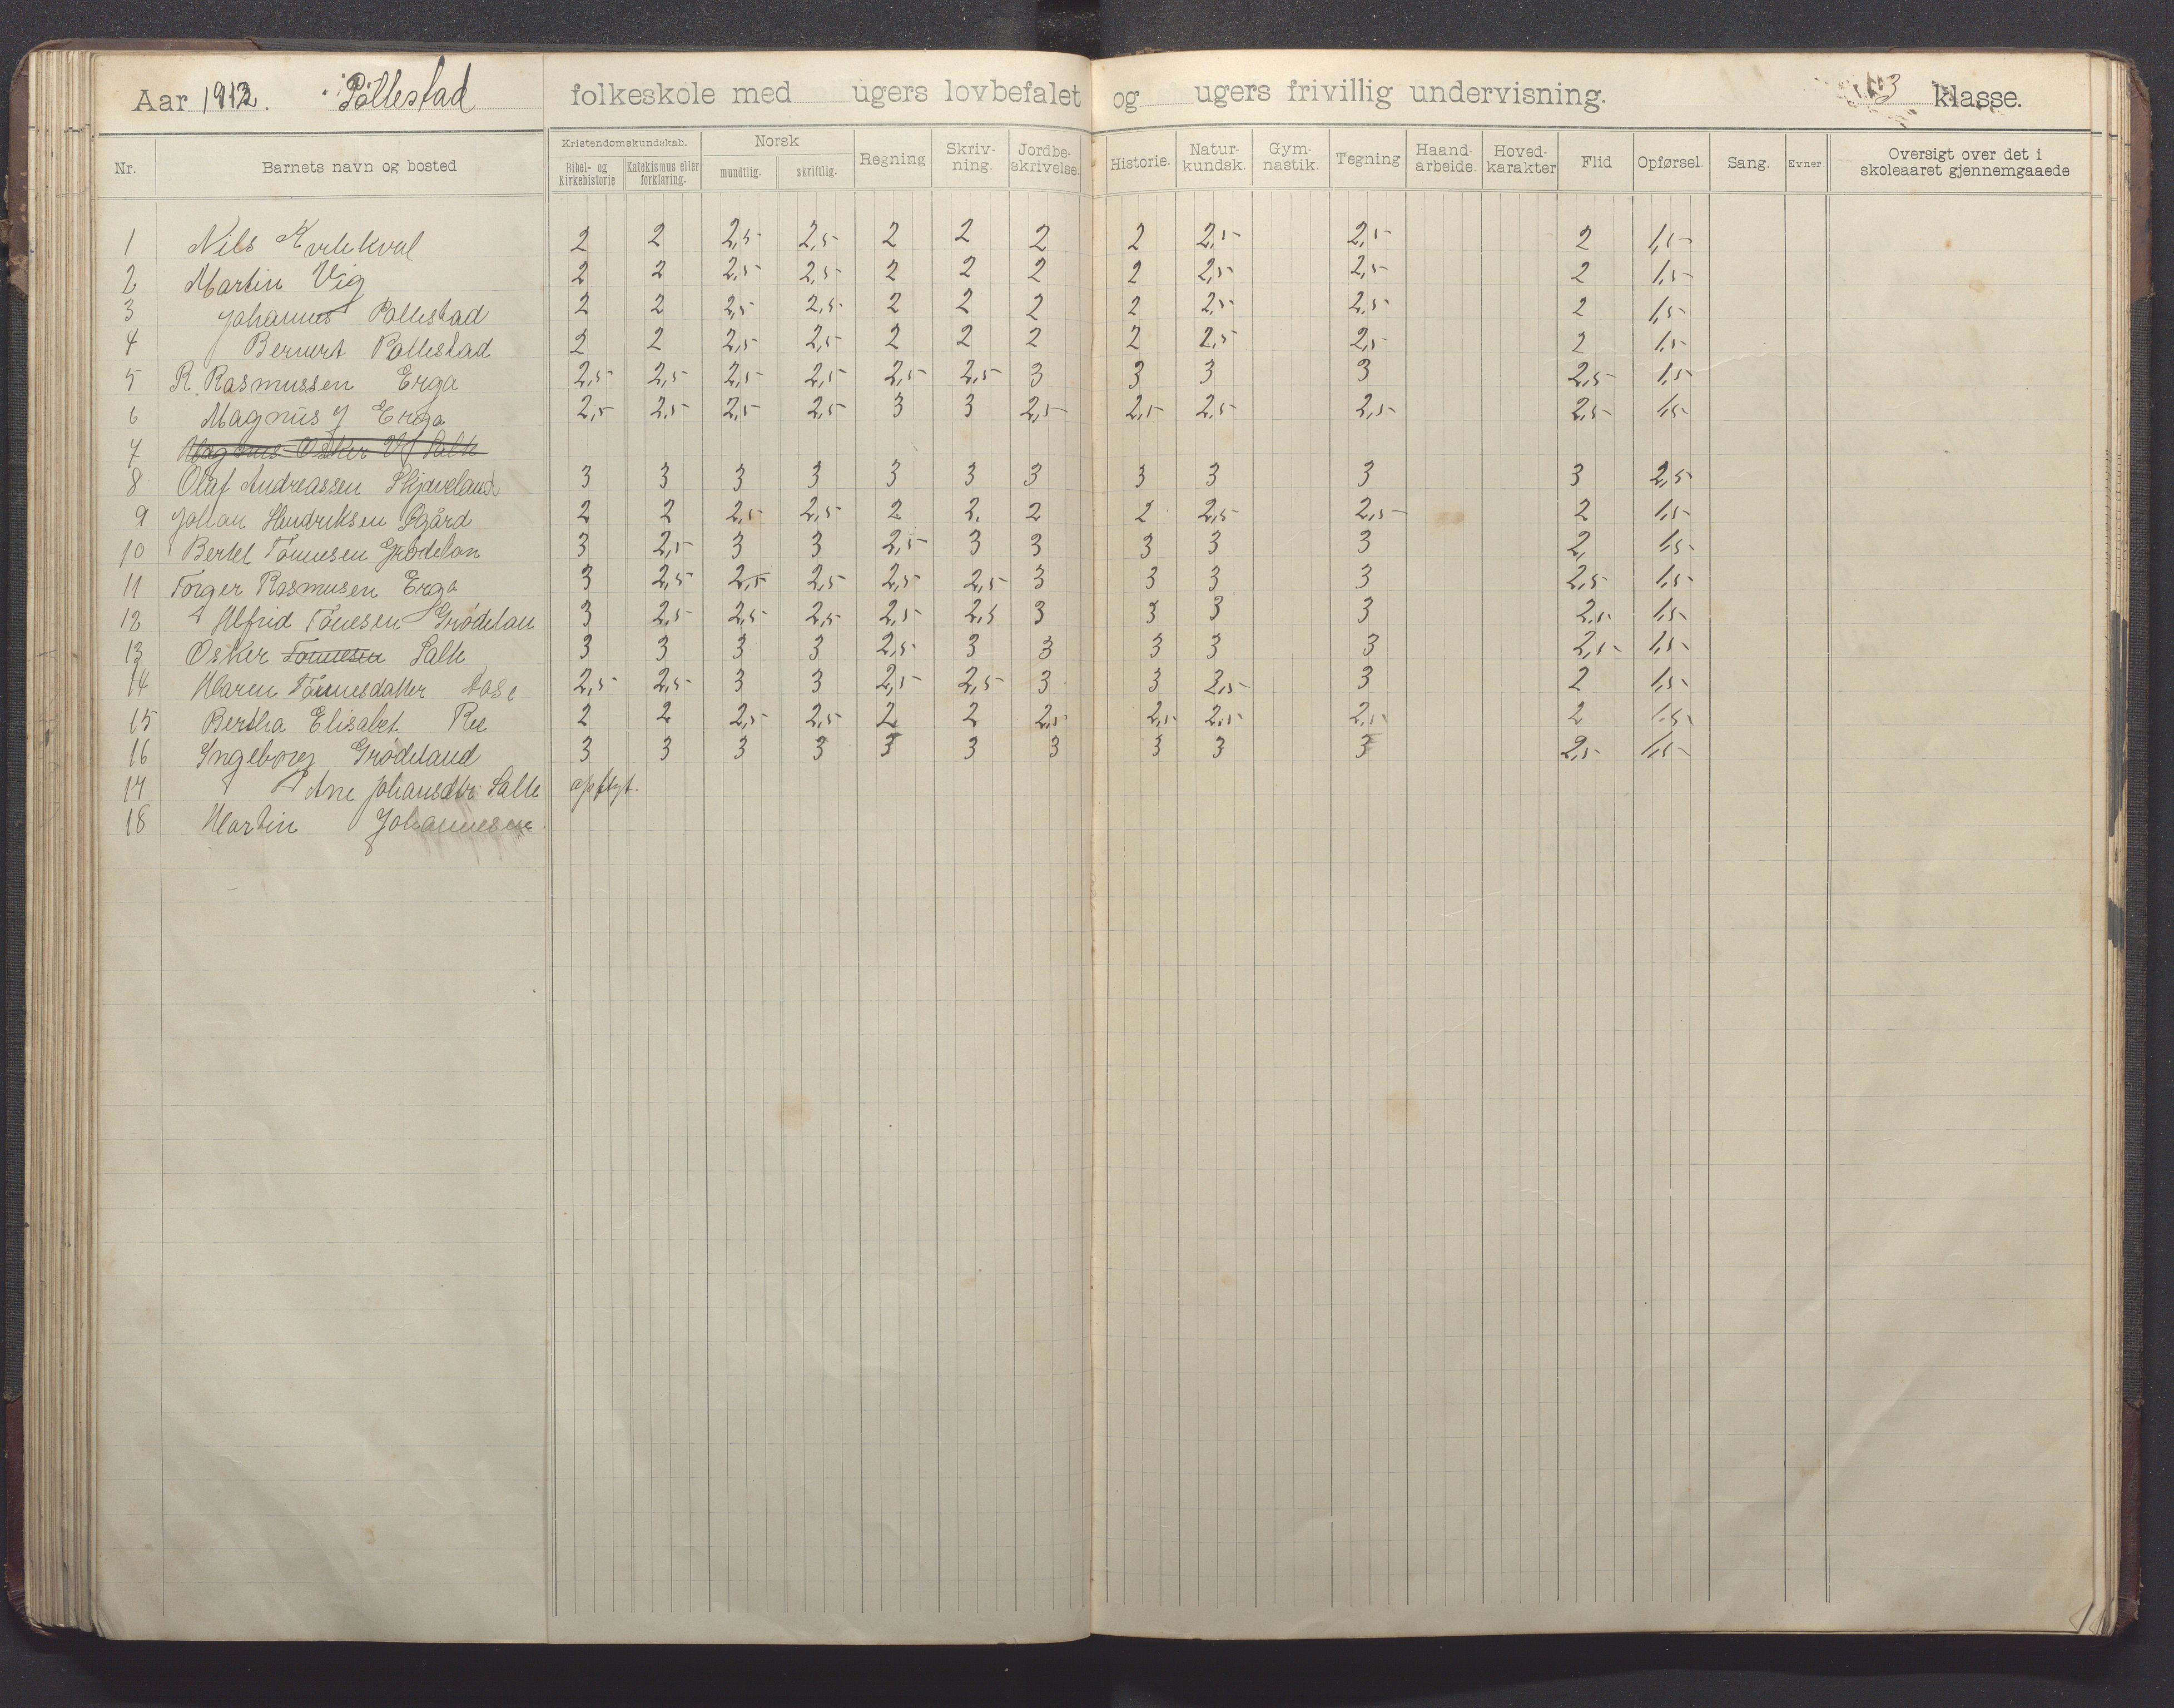 Aar 1912. Pollestad folkeskole med ugers lovbefalet og ugers frivillig undervisning. 3 klasse.
Nr. Barnets navn og bosted Kristendomskundskab. Bibel- og kirkehistorie Katekismus eller forklaring. Norsk mundtlig. skriftlig. Regning Skriv-ning. Jordbe-skrivelse. Historie. Natur-kundsk. Gym-nastik. Tegning Haand-arbeide. Hoved-karakter Flid Opførsel. Sang. Evner Oversigt over det i skoleaaret gjennemgaaede
1 Nils Kvilekval 2 2 2,5 2,5 2 2 2 2 2,5 2,5 2 1,5
2 Martin Vig 2 2 2,5 2,5 2 2 2 2 2,5 2,5 2 1,5
3 Johannes Pollestad 2 2 2,5 2,5 2 2 2 2 2,5 2,5 2 1,5
4 Berner Pollestad 2 2 2,5 2,5 2 2 2 2 2,5 2,5 2 1,5
5 R. Rasmussen Erga 2,5 2,5 2,5 2,5 2,5 2,5 3 3 3 3 2,5 1,5
6 Magnus J Erga 2,5 2,5 2,5 2,5 3 3 2,5 2,5 2,5 2,5 2,5 1,5
7 Magnus Osker Salte
8 Olaf Andreassen Skjæveland 3 3 3 3 3 3 3 3 3 3 3 2,5
9 Johan Hendriksen Øgård 2 2 2,5 2,5 2 2. 2 2 2,5 2,5 2 1,5
10 Bertel Tønnesen Grødelan 3 2,5 3 3 2,5 3 3 3 3 3 2, 1,5
11 Torger Rasmusen Erga 3 2,5 2,5 2,5 2,5 2,5 3 3 3 3 2,5 1,5
12 Alfrid Tönesen Grødelan 3 2,5 2,5 2,5 2,5 2,5 3 3 3 3 2,5 1,5
13 Osker Tönnesen Salte 3 3 3 3 2,5 3 3 3 3 3 2,5 1,5
14 Maren Tönnesdatter Aase 2,5 2,5 3 3 2,5 2,5 3 3 2,5 3 2 1,5
15 Bertha Elisabet Re 2 2 2,5 2,5 2 2 2,5 2,5 2,5 2,5 2 1,5
16 Ingeborg Grødeland 3 3 3 3 3 3 3 3 3 3 2,5 1,5
17 Ane Johansdtr Salte opflyt.
18 Martin Johannesen